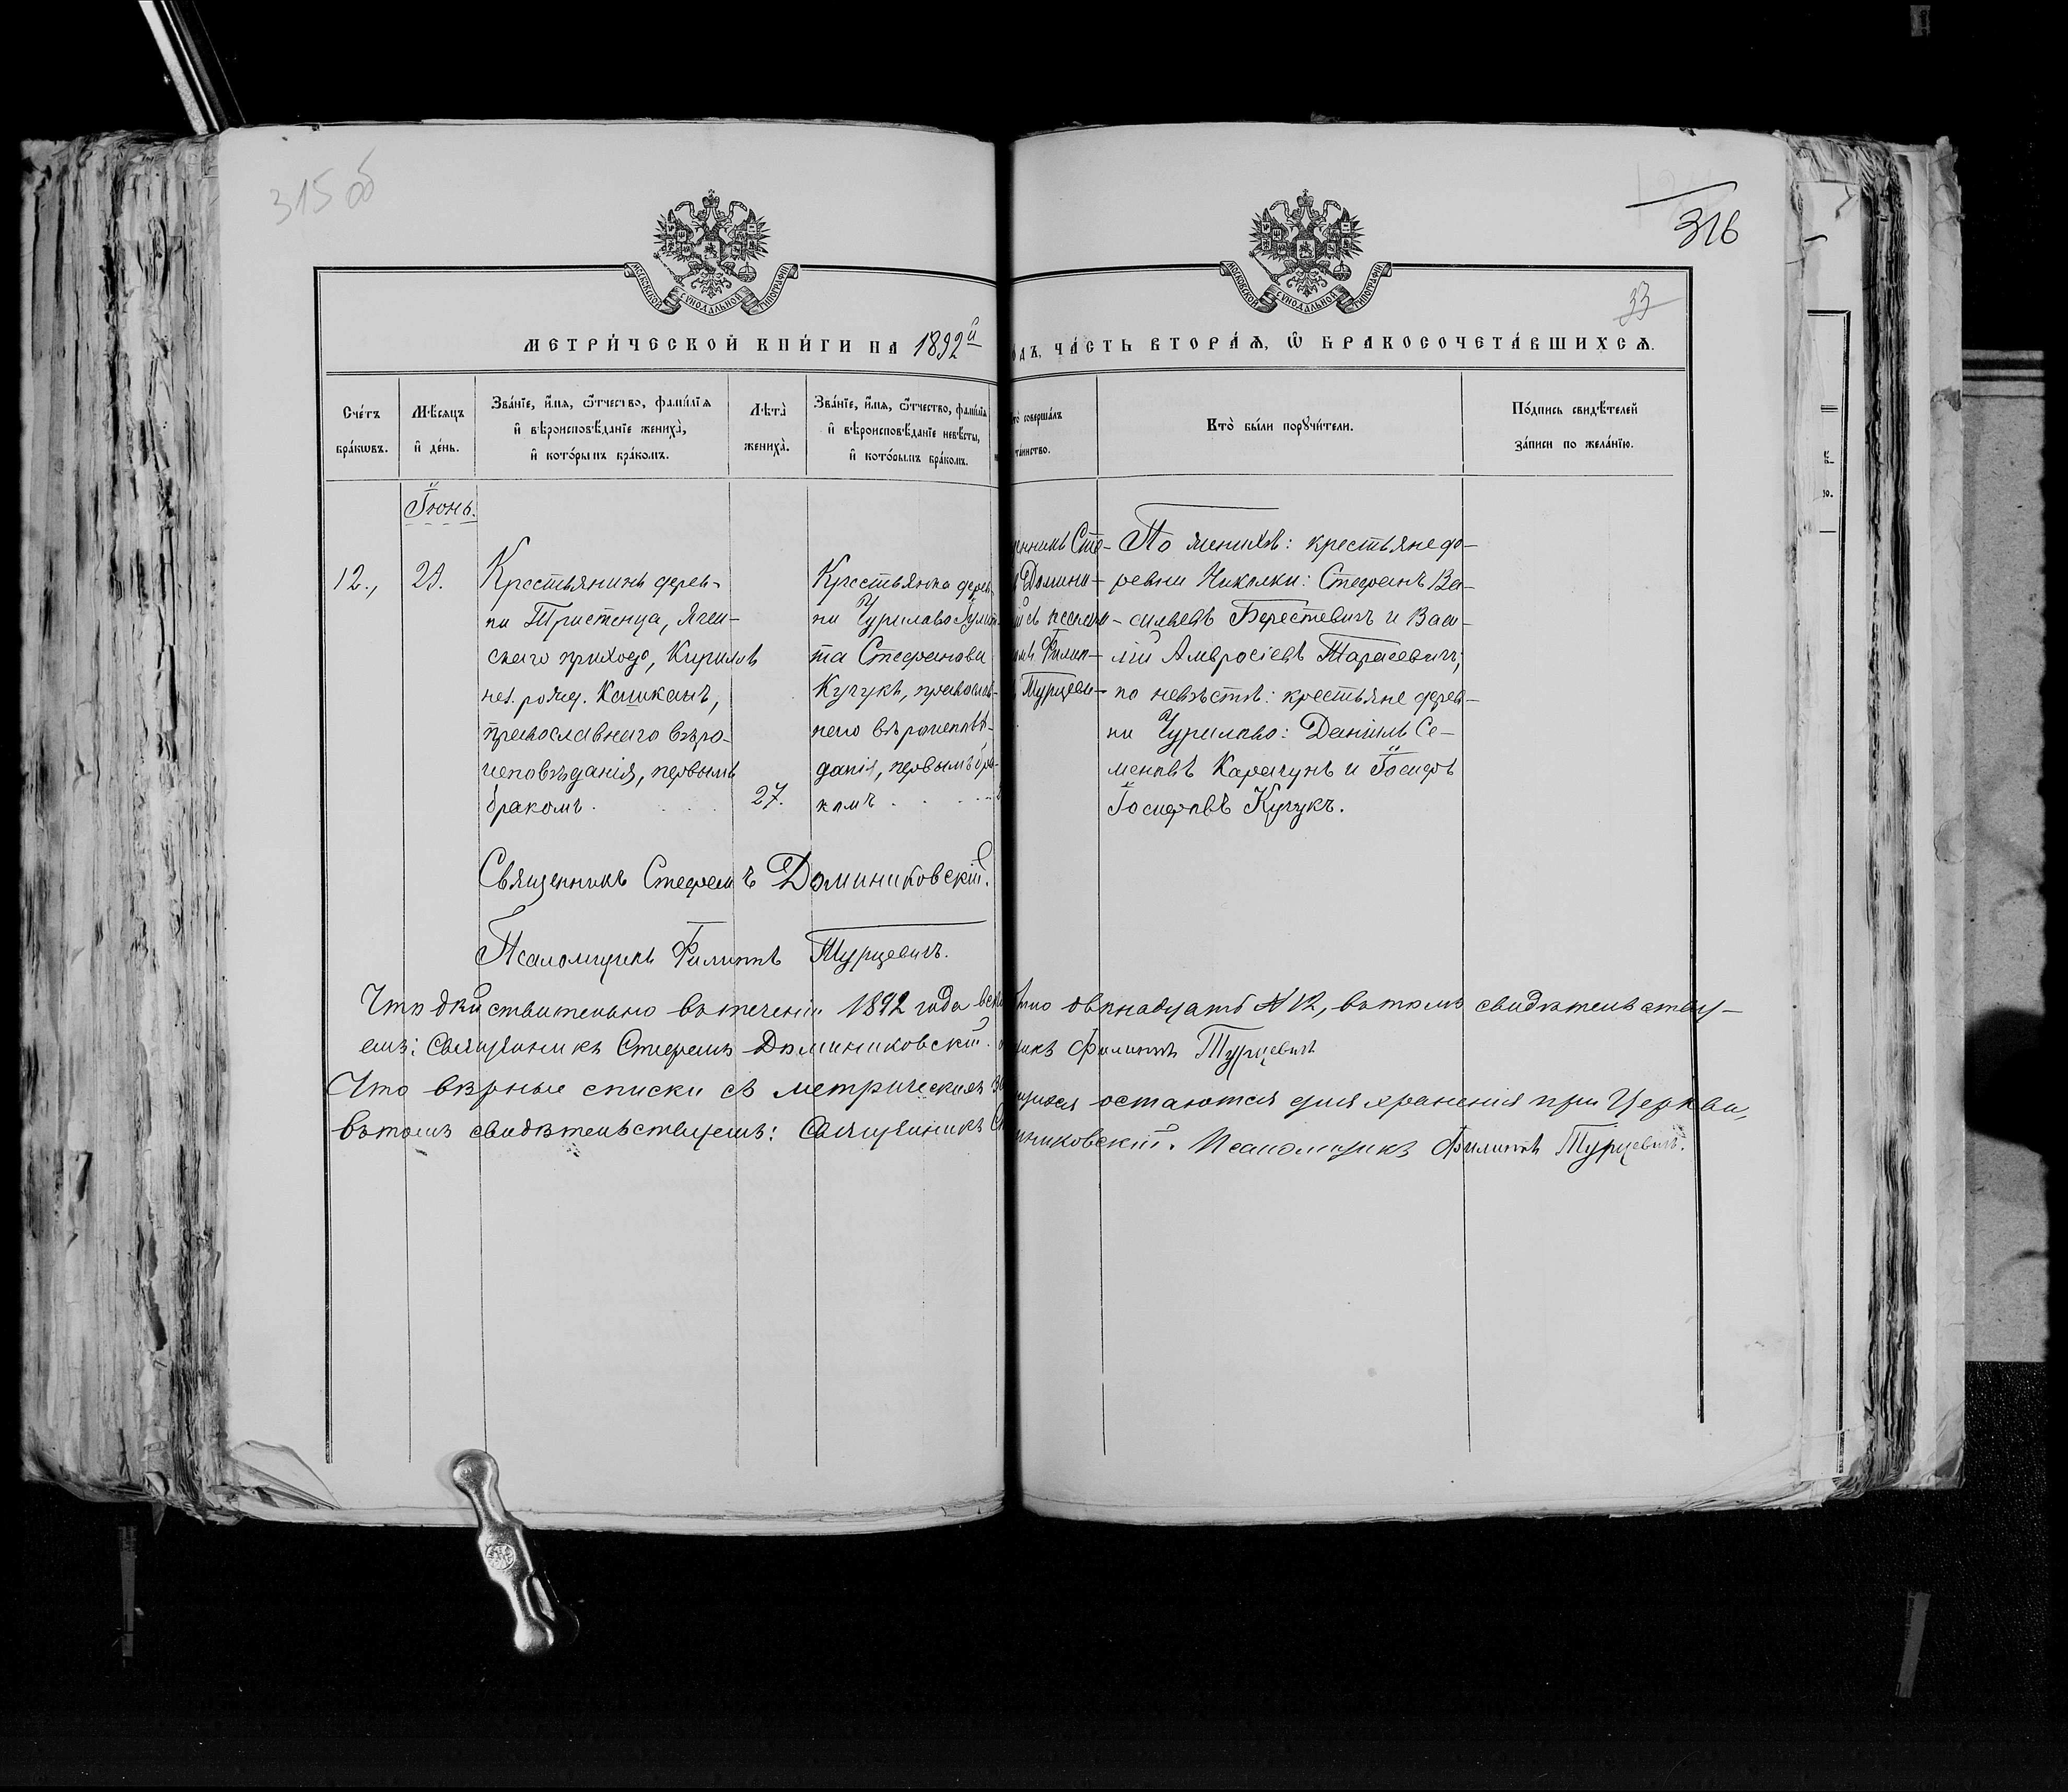 315 об
316
33
МОСКОВСКОЙ СѴНОДАЛЬНОЙ ТИПОГРАФІИ
МОСКОВСКОЙ СѴНОДАЛЬНОЙ ТИПОГРАФІИ
МЕТРИ́ЧЕСКОЙ КНИ́ГИ НА 1892й
ОДЪ, ЧА́СТЬ ВТОРА́Ѧ, Ѽ БРАКОСОЧЕТА́ВШИХСѦ.
Сче́тъ бра́кѡвъ.
Мѣ́сѧцъ и҆ де́нь.
Зва́нїе, и҆́мѧ, ѻ҆́тчество, фамилїѧ и҆ вѣроисповѣ́данїе жениха̀, и҆ кото́рымъ бра́комъ.
Лѣта̀ жениха̀.
Зва́нїе, и҆́мѧ, ѻ҆́тчество, фамилїѧ и҆ вѣроисповѣ́данїе невѣ́сты, и҆ кото́рымъ бра́комъ.
то̀ соверша́лъ та́инство.
Кто̀ бы́ли порꙋчи́тели.
По́дпись свидѣ́телей за́писи по жела́нїю.
Іюнь.
12.,
21.
Крестьянинъ дерев-
ни Тристенца, Ячен-
скаго прихода, Кирилъ
нез. рожд. Кашканъ,
православнаго вѣро-
исповѣданія, первымъ
бракомъ.
27.
Крестьянка дерев-
ни Чурилово Улит-
та Стефанова
Кучукъ, православ-
наго вѣроисповѣ-
данія, первымъ бра-
комъ
енникъ Сте-
Домини-
псалом-
Филип-
Турцеви-
По женихѣ: крестьяне де-
ревни Николки: Стефанъ Ва-
сильевъ Берестевичъ и Васи-
лій Амвросіевъ Тарасевичъ;
по невѣстѣ: крестьяне дерев-
ни Чурилово: Даніилъ Се-
меновъ Карачунъ и Іосифъ
Іосифовъ Кучукъ.
Священникъ Стефанъ Доминиковскій.
Псаломщикъ Филиппъ Турцевичъ.
Что дѣйствительно въ теченіи 1892 года двѣнадцать № 12, въ томъ свидѣтельству-
емъ: Священникъ Стефанъ Доминиковскій. щикъ Филиппъ Турцевичъ
Что вѣрные списки съ метрическихъ остаются для храненія при Церкви,
въ томъ свидѣтельствуемъ: Священникъ иниковскій. Псаломщикъ Филиппъ Турцевичъ.